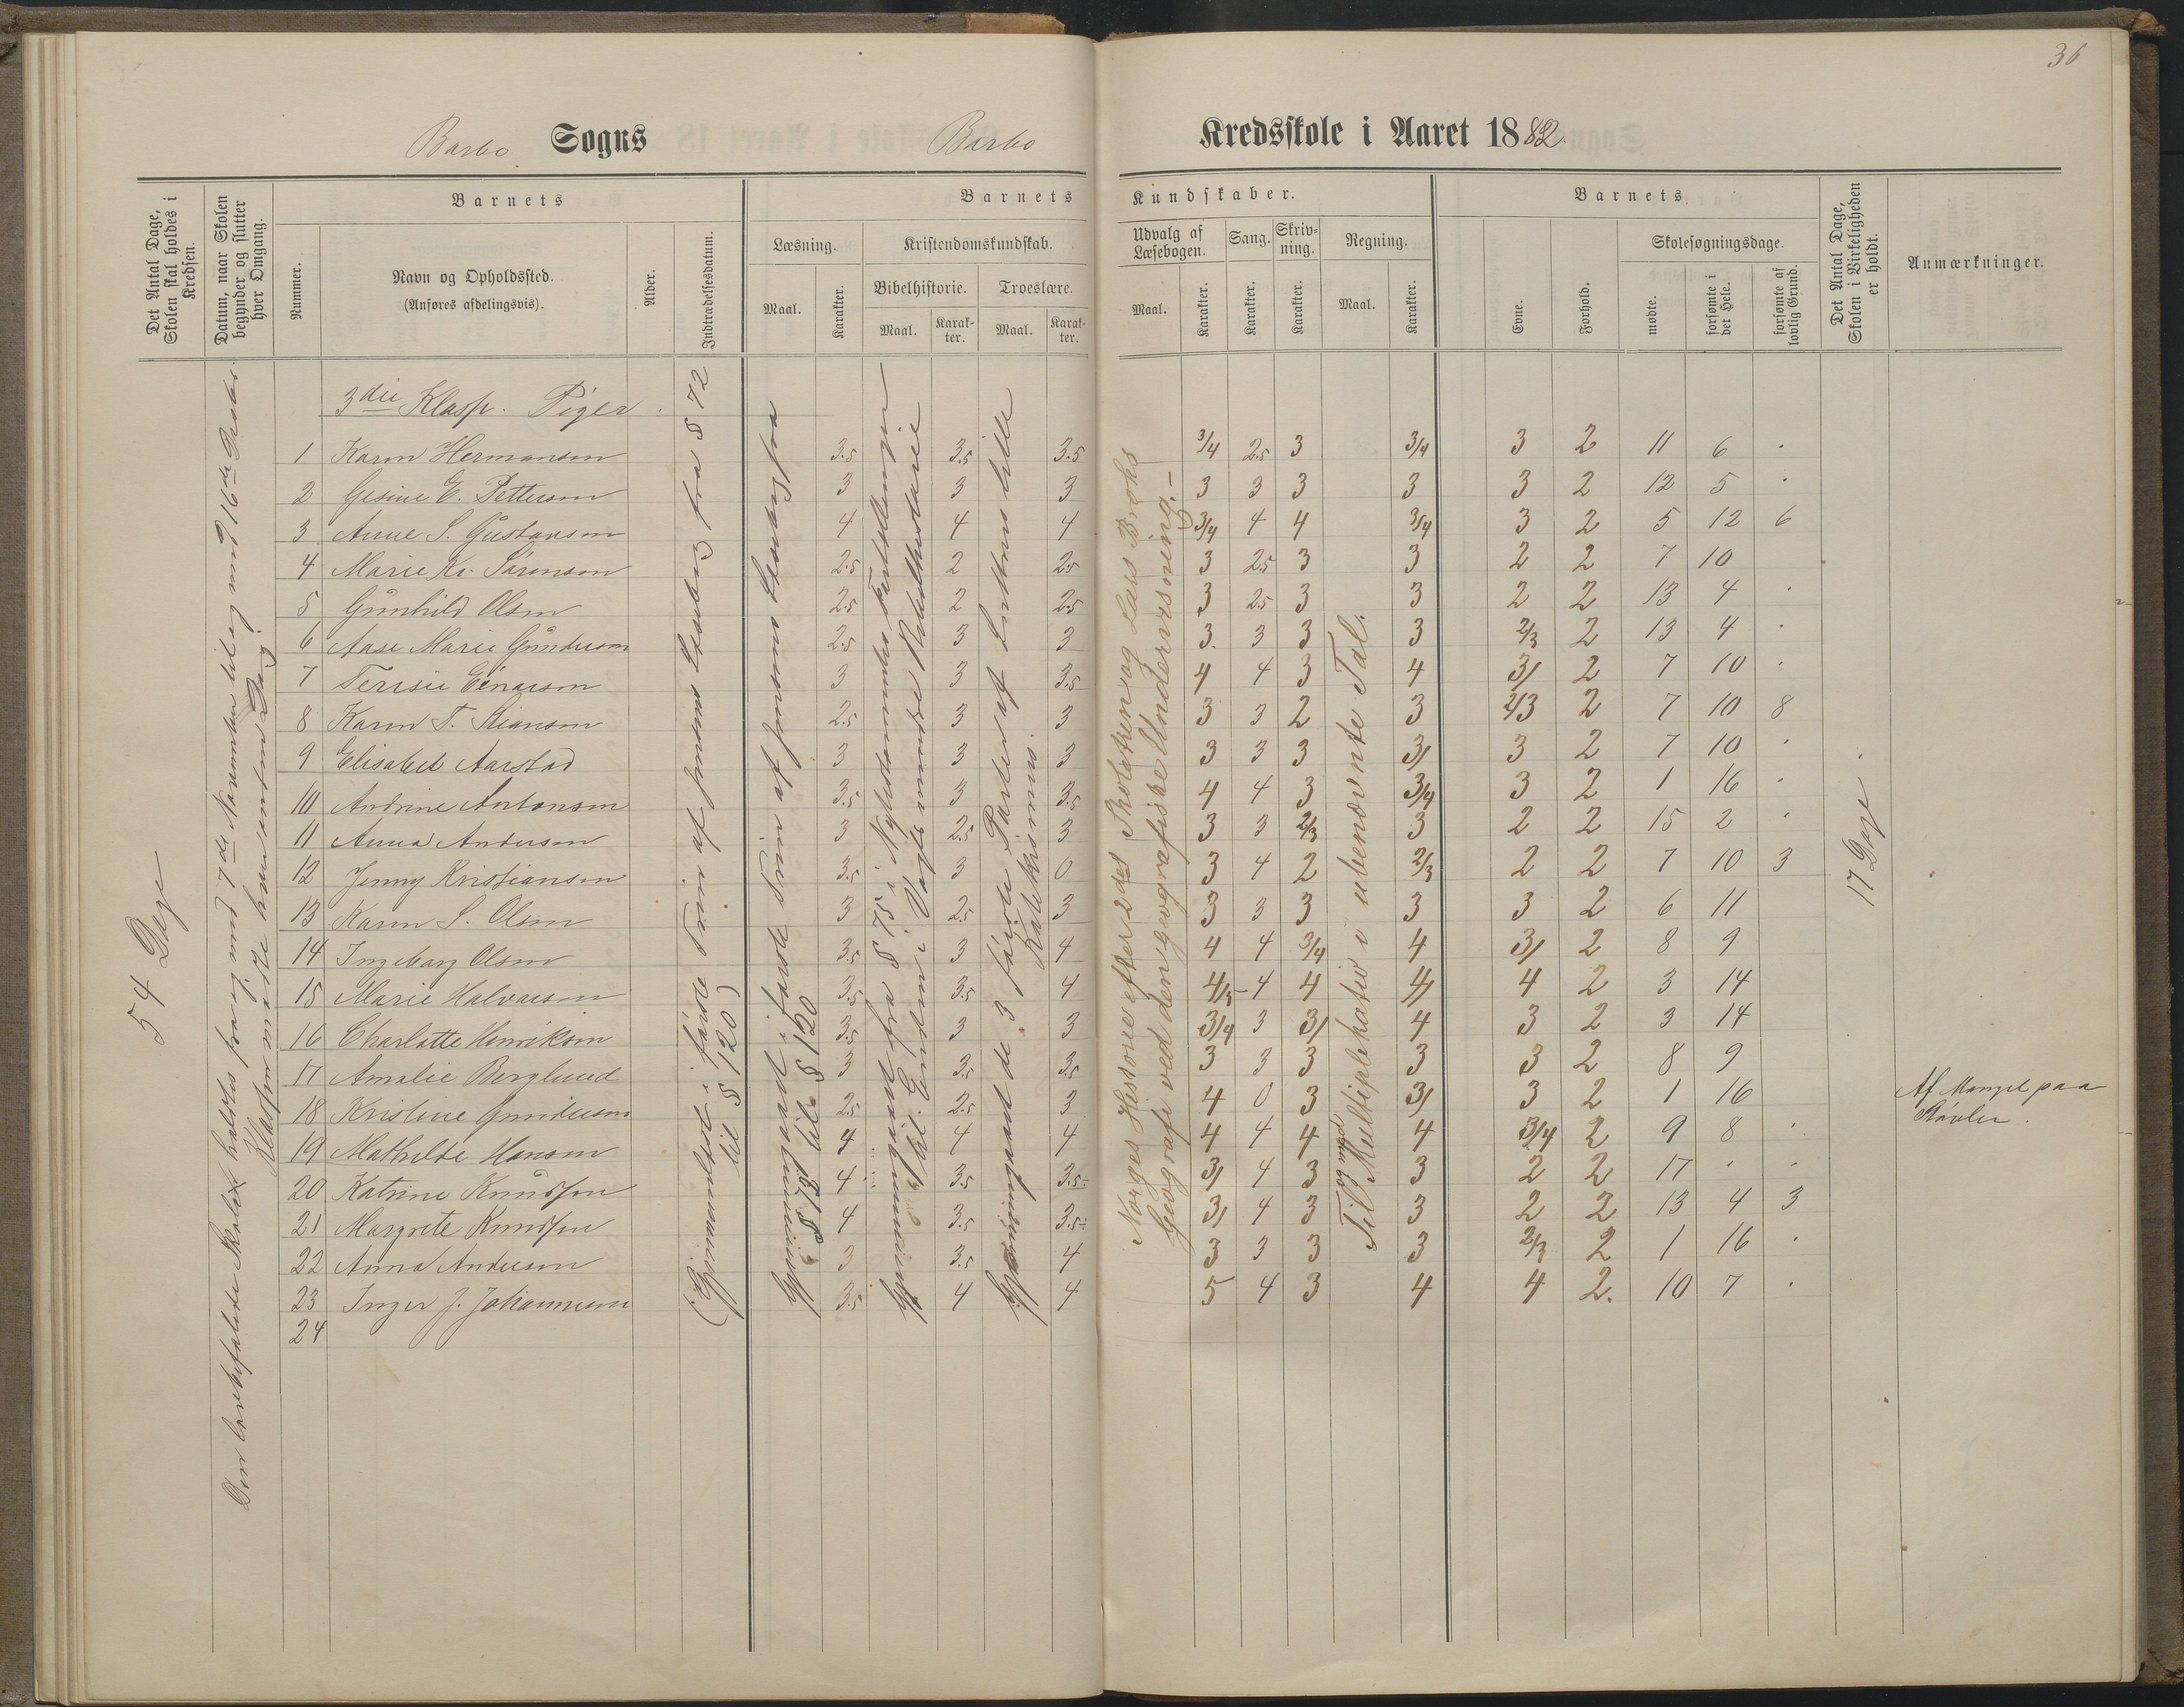 36
Barbo Sogns Barbo Kredsskole i Aaret 1882.
Det Antal Dage, Skolen skal holdes i Kredsen.
Datum, naar Skolen begynder og slutter hver Omgang.
Barnets
Nummer.
Navn og Opholdssted.
(Anføres afdelingsvis).
Alder.
Indtrædelsesdatum.
Barnets Kundskaber.
Læsning.
Maal.
Karakter.
Kristendomskundskab.
Bibelhistorie.
Maal.
Karakter.
Troeslære.
Maal.
Karakter.
Udvalg af Læsebogen.
Maal.
Karakter.
Sang.
Karakter.
Skrivning.
Karakter.
Regning.
Maal.
Karakter.
Barnets
Evne.
Forhold.
Skolesøgningsdage.
mødte.
forsømte i det Hele.
forsømte af lovlig Grund.
Det Antal Dage, Skolen i Virkeligheden er holdt.
Anmærkninger.
54 Dage
3die Klasse. Piger.
1 Karen Hermansen 3.5 3.5 3.5 3/4 2.5 3 3/4 3 2 11 6 .
2 Gesine E. Pettersen 3 3 3 3 3 3 3 3 2 12 5 .
3 Anne S. Gustavsen 4 4 4 3/4 4 4 3/4 3 2 5 12 6
4 Marie Kr. Sørensen 2.5 2 2.5 3 2.5 3 3 2 2 7 10
5 Gunhild Olsen 2.5 2 2.5 3 2.5 3 3 2 2 13 4 .
6 Aase Marie Gundersen 2.5 3 3 3 3 3 3 2/3 2 13 4 .
7 Terisie Einarsen 3 3 3.5 4 4 3 4 3/ 2 7 10 .
8 Karen T. Stiansen 2.5 3 3 3 3 2 3 2/3 2 7 10 8
9 Elisabet Aarstad 3 3 3 3 3 3 3/ 3 2 7 10 .
10 Andrine Antonsen 3.5 3 3.5 4 4 3 3/4 3 2 1 16 .
11 Anna Andersen 3 2.5 3 3 3 2/3 3 2 2 15 2 .
12 Jenny Kristiansen 3.5 3 0 3 4 2 2/3 2 2 7 10 3
13 Karen S. Olsen 3 2.5 3 3 3 3 3 3 2 6 11
14 Ingeborg Olsen 3.5 3 4 4 4 3/4 4 3/ 2 8 9
15 Marie Halvorsen 3.5 3.5 4 4/5 4 4 4/ 4 2 3 14
16 Charlotte Henriksen 3.5 3 3 3/4 3 3/ 4 3 2 3 14
17 Amalie Berglund 3 3.5 3.5 3 3 3 3 3 2 8 9
18 Kristine Gundersen 2.5 2.5 3 4 0 3 3/ 3 2 1 16 Af Mangel paa Støvler.
19 Mathilde Hansen 4 4 4 4 4 4 4 3/4 2 9 8 .
20 Katrine Knudsen 4 3.5 3.5 3/ 4 3 3 2 2 17 . .
21 Margrete Knudsen 4 3.5 3.5 3/ 4 3 3 2 2 13 4 3
22 Anna Andersen 3 3.5 4 3 3 3 3 2/3 2 1 16 .
23 Inger J. Johannesen 3.5 4 4 5 4 3 4 4 2. 10 7 .
24
(Gjennemlæst i første Trin af Jensens Læsebog fra § 72
til § 120)
§ 72 til § 120
Norges Historie efter 2det Skoletrin og Lars Broks
Geografi ved den geografiske Undervisning.
Til Multiplikation i ubenævnte Tal.
17 Dage